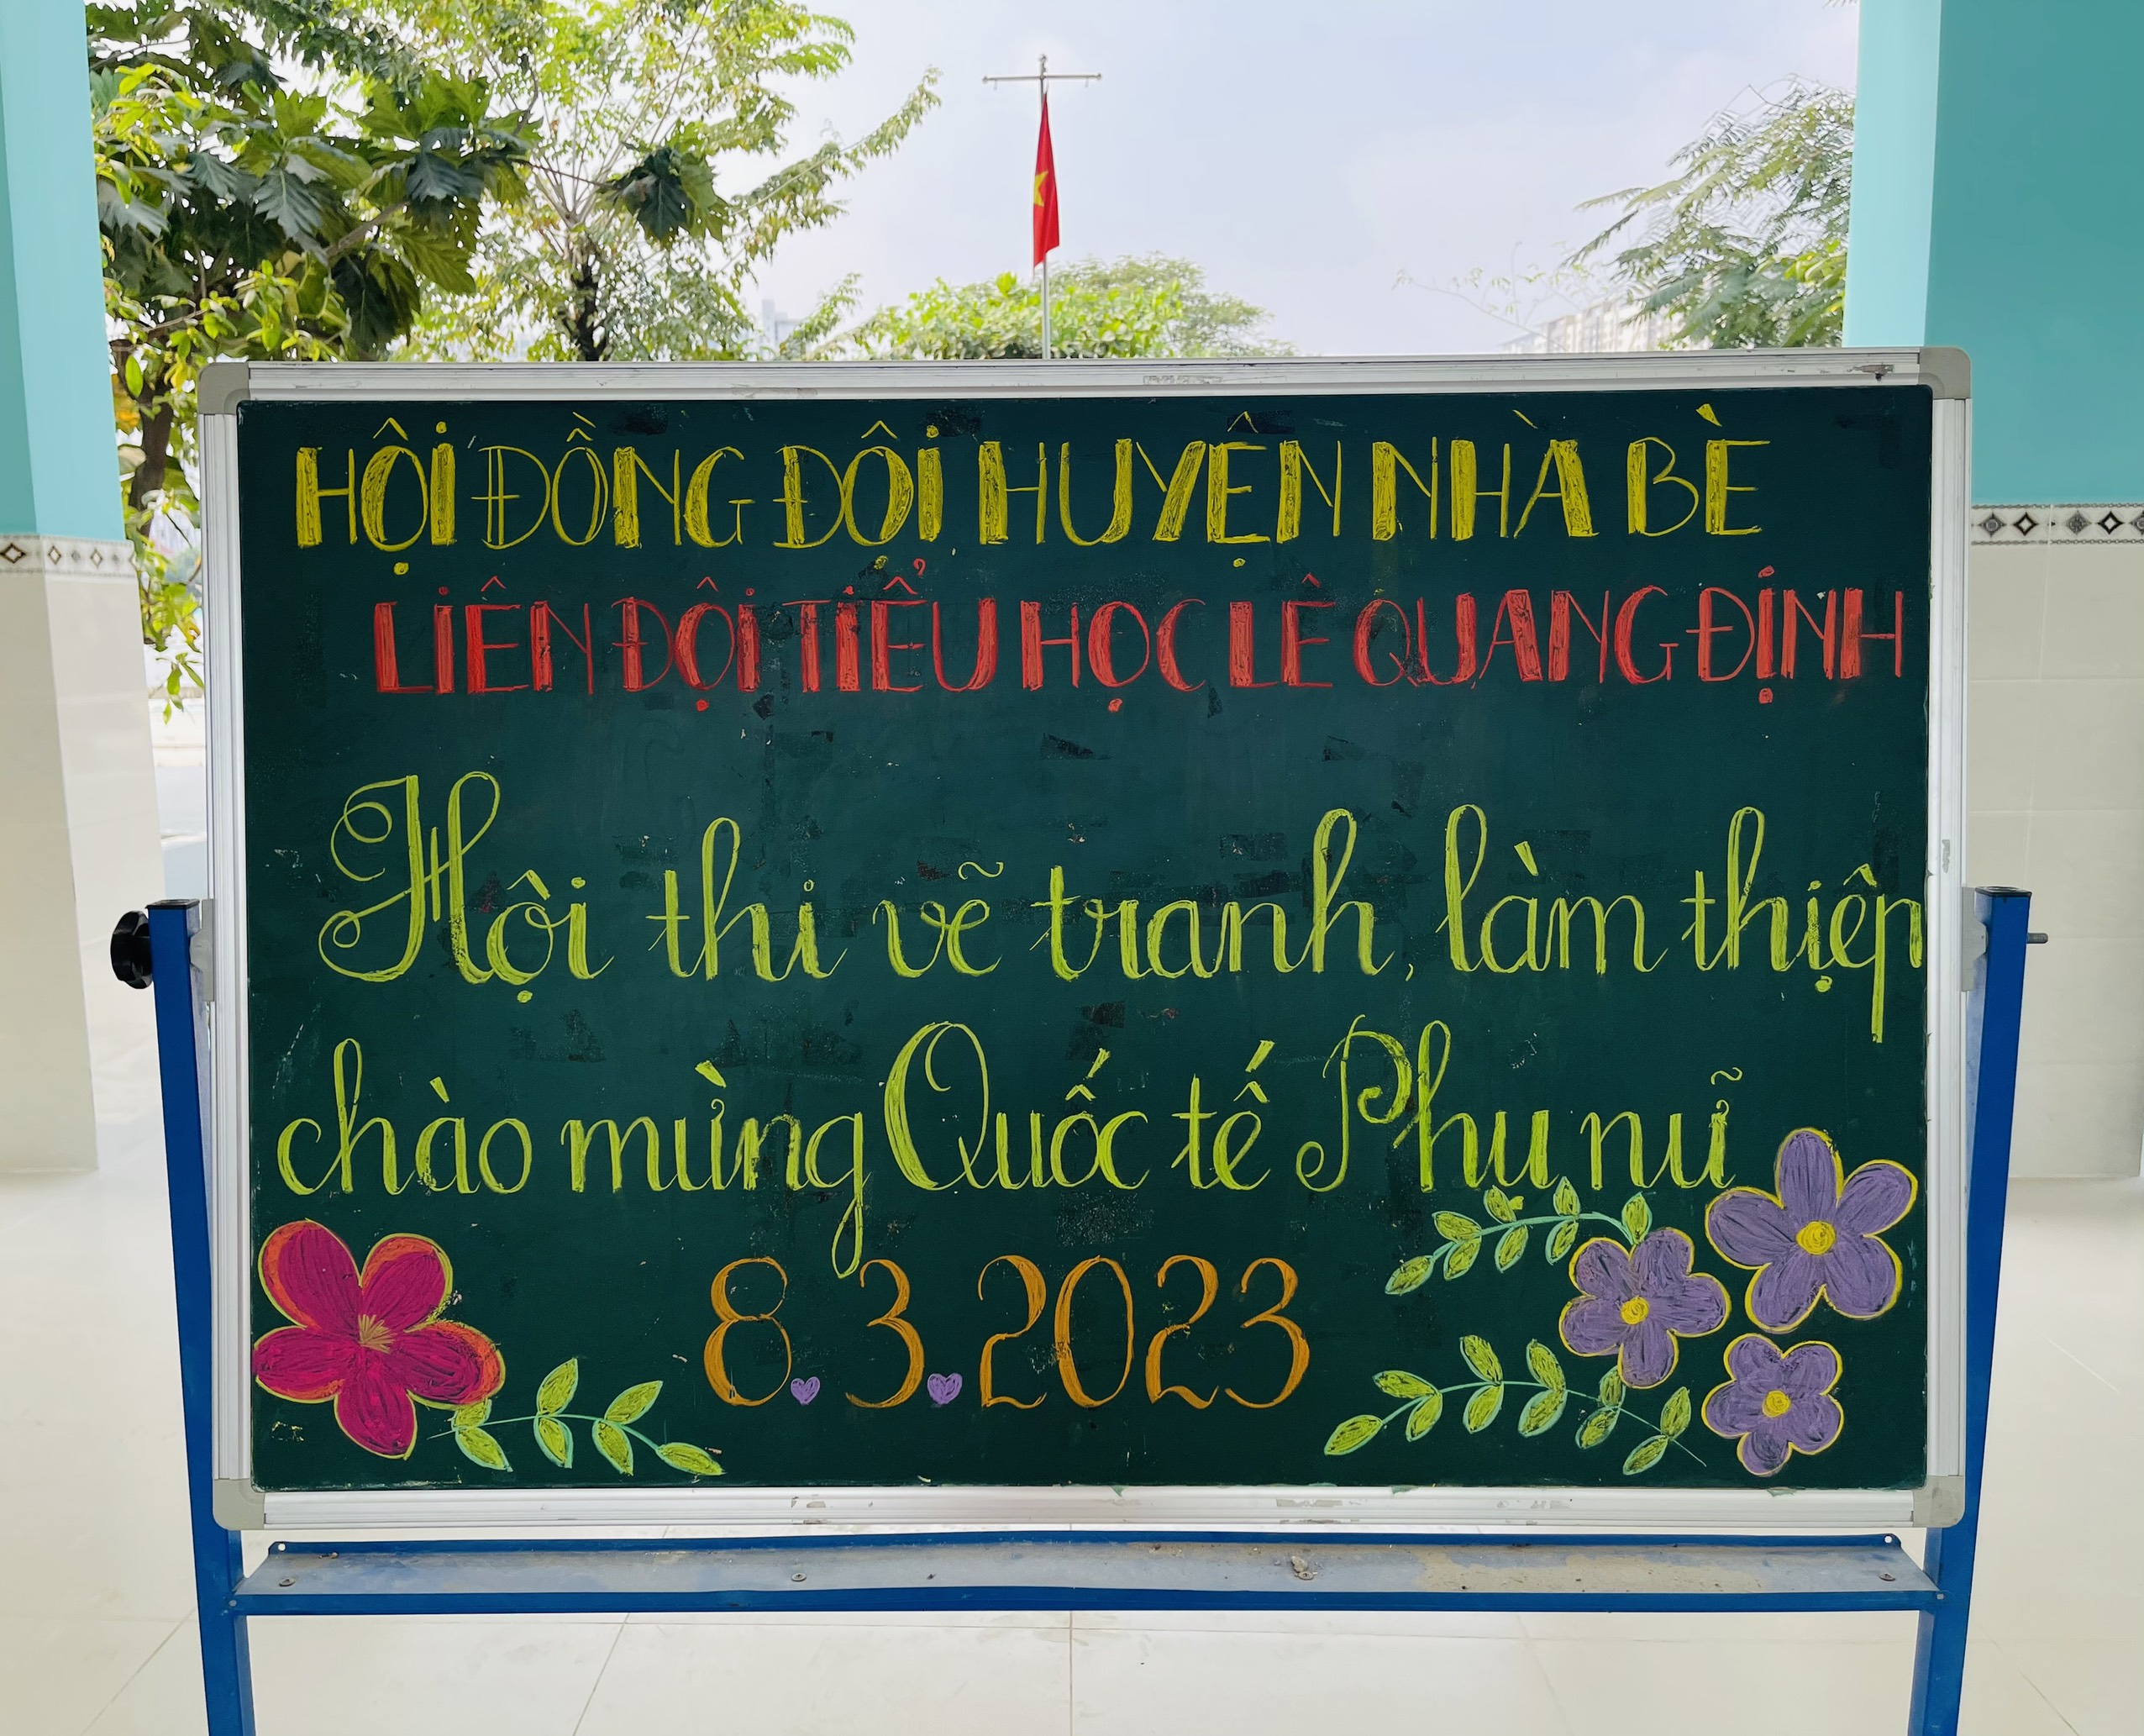 HỘI ĐỒNG ĐỘI HUYỆN NHÀ BÈ
LIÊN ĐỘI TIỂU HỌC LÊ QUANG ĐỊNH
Hội thi vẽ tranh, làm thiệp
chào mừng Quốc tế Phu nữ
8.3.2023